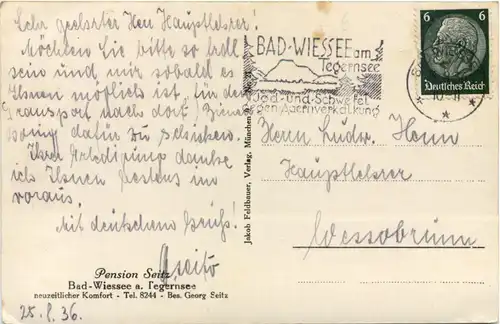 Sehr geehrter Herr Hauptlehrer!
Möchten Sie bitte so
sein und mir sobald es
Ihnen möglich ist, für den
Transport nach dort
dafür zu schicken.
Ihrer danke
ich Ihnen bestens im
voraus.
Mit deutschem Gruß!
Seitz
Pension Seitz
Bad-Wiessee a. Tegernsee
neuzeitlicher Komfort - Tel. 8244 - Bes. Georg Seitz
25. 36.
Jakob Feldbauer, Verlag, München
BAD-WIESSEE am
Tegernsee
Jod-und-Schwefel
gegen Aderverkalkung
6 6
Deutsches Reich
Herrn Ludw. Henn
Hauptlehrer
Wessobrunn